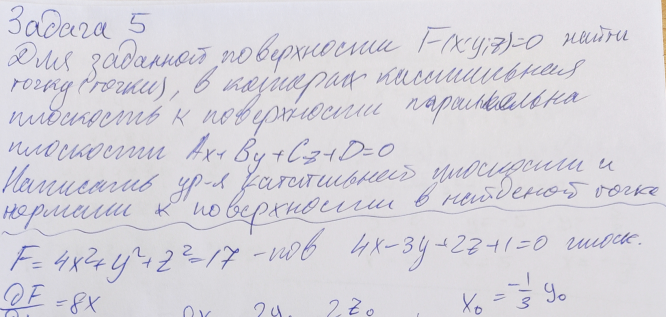 Задача 5
Для заданной поверхности F(x;y;z)=0 найти
точку (точки), в которых касательная
плоскость к поверхности параллельна
плоскости Ax+By+Cz+D=0
Написать ур-я касательной плоскости и
нормали к поверхности в найденой точке
F=4x²+y²+z²=17 -пов 4x-3y+2z+1=0 плоск.
∂F =8x 2y 2z₀ x₀ = -1/3 y₀